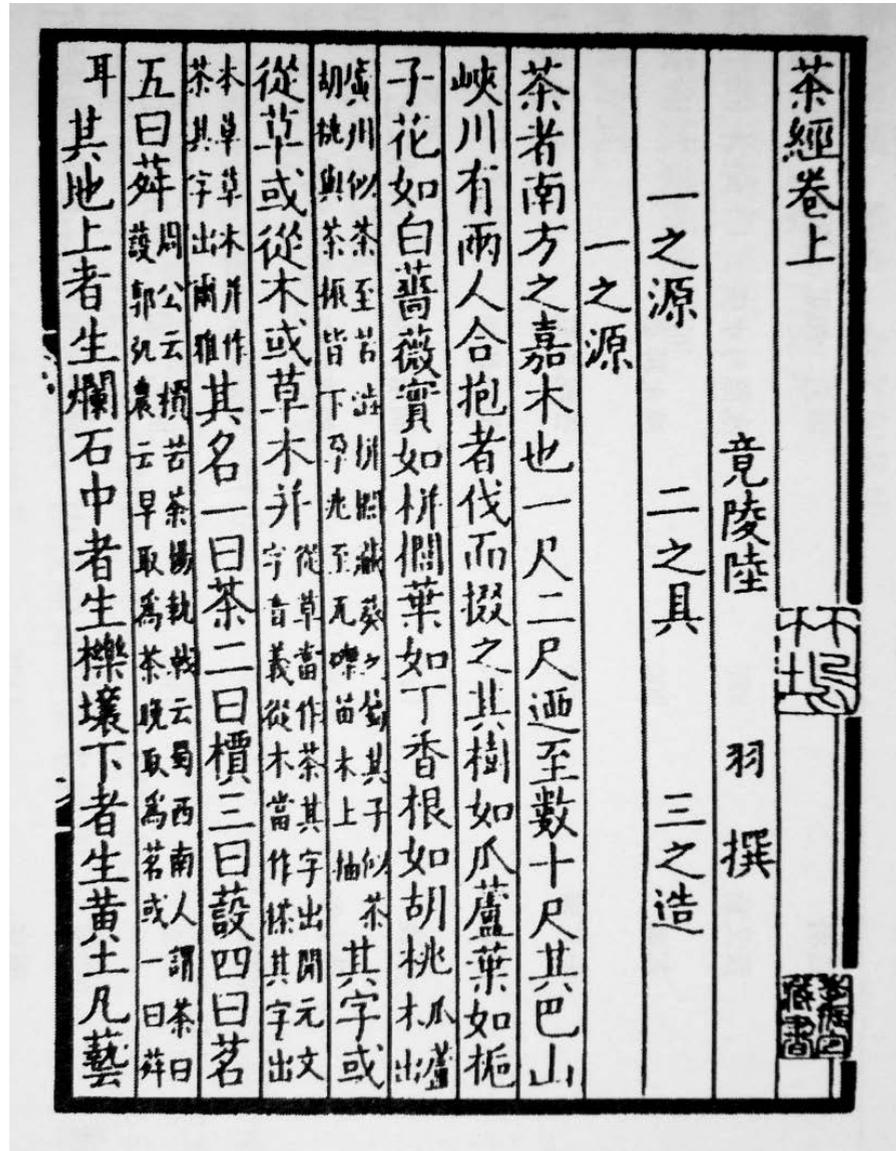 茶經卷上
竟陵陸 羽 撰
一之源 二之具 三之造
一之源
茶者南方之嘉木也一尺二尺迺至數十尺其巴山
峽川有兩人合抱者伐而掇之其樹如瓜蘆葉如梔
子花如白薔薇實如栟櫚葉如丁香根如胡桃瓜蘆木出
廣川似茶至苦澁栟櫚葵之其子似茶
胡桃與茶根皆下孕兆至瓦礫苗木上抽其字或
從草或從木或草木并從草當作茶其字出開元文
字音義從木當作搽其字出
本草草木并作
茶其字出爾雅其名一曰茶二曰檟三曰蔎四曰茗
五曰荈周公云檟苦荼楊執戟云蜀西南人謂茶曰
蔎郭弘農云早取爲茶晚取爲茗或一曰荈
耳其地上者生爛石中者生櫟壤下者生黃土凡藝
藏書